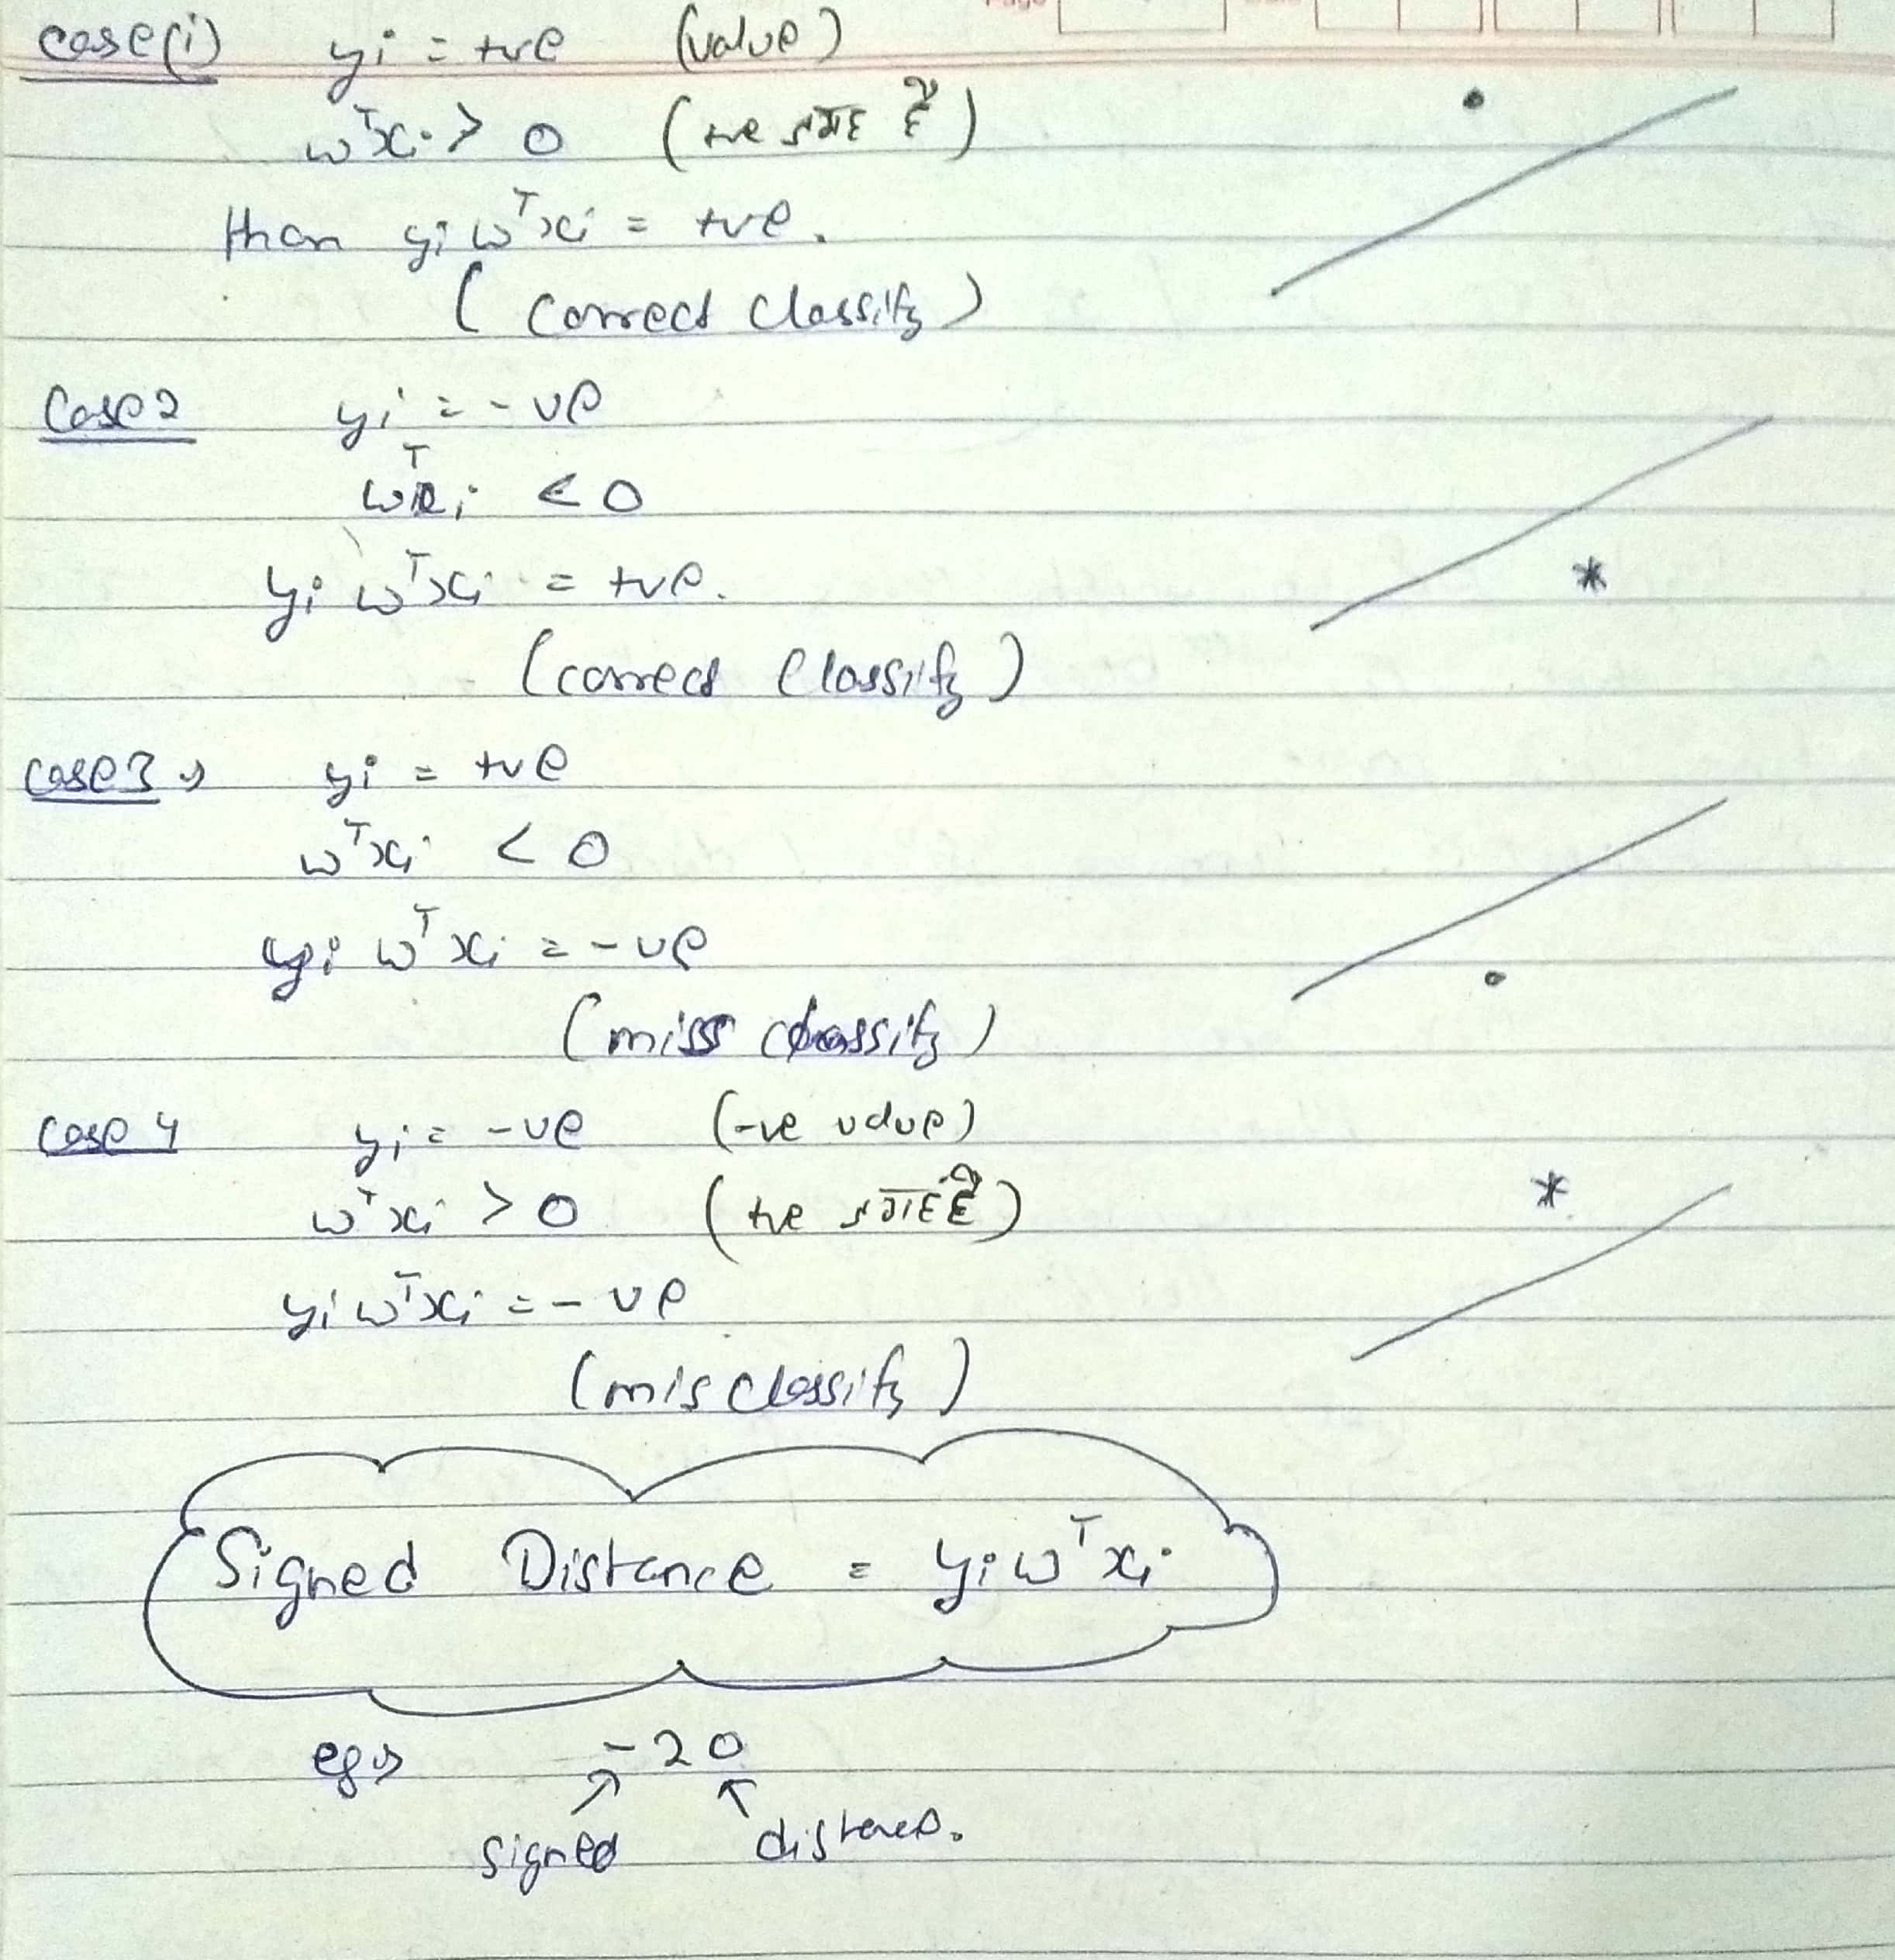 case(i) yi = +ve (value)
wᵀxi > 0 (+ve साइड है)
than yi wᵀxi = +ve.
(correct classify)
Case 2 yi = -ve
wᵀxi < 0
yi wᵀxi = +ve.
(correct classify)
case 3 yi = +ve
wᵀxi < 0
yi wᵀxi = -ve
(miss classify)
case 4 yi = -ve (-ve value)
wᵀxi > 0 (+ve साइड है)
yi wᵀxi = -ve
(mis classify)
Signed Distance = yi wᵀxi
eg -20
signed distance.